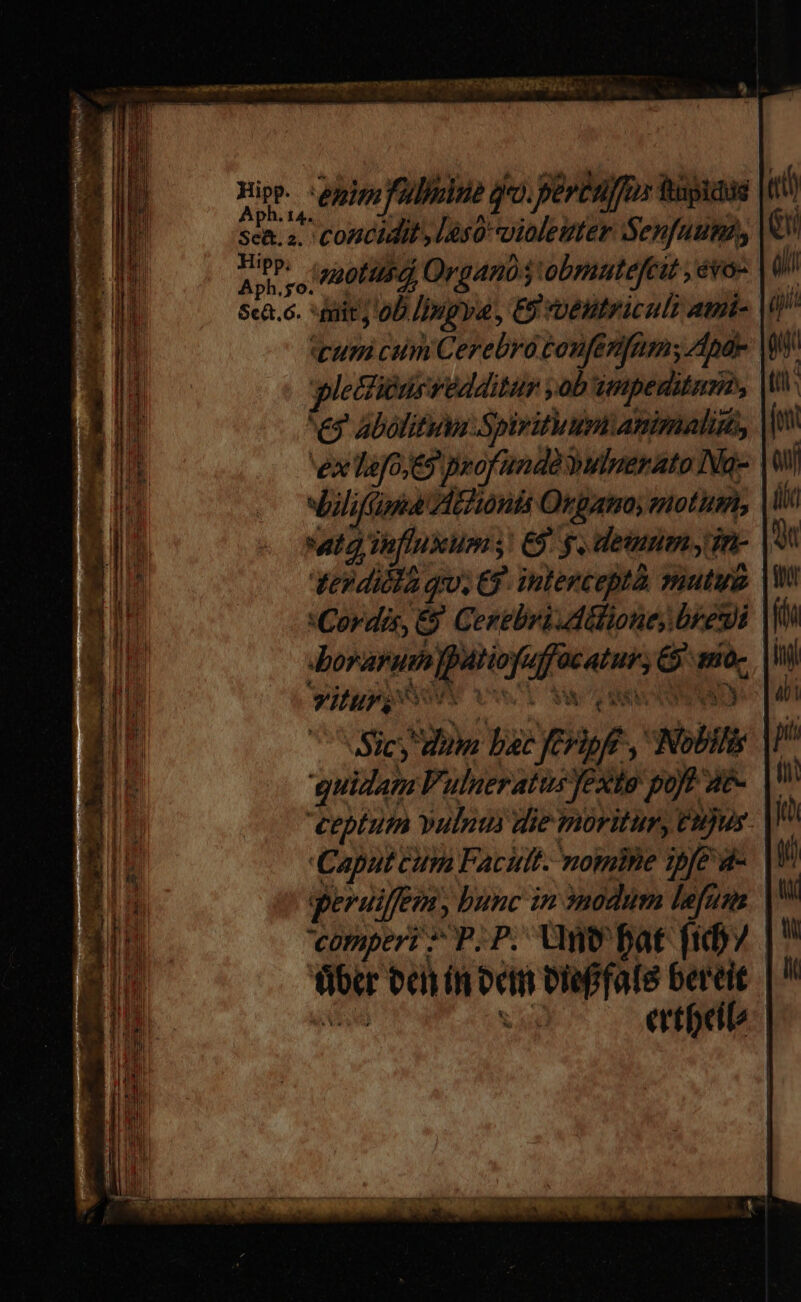 Hipp. enim fulmine qvo. percussus stupidus
Aph. 14.
Sect. 2. concidit, læsò violenter Sensuum,
Hipp. motusq́; Organò; obmutescit, evo-
Aph. 50.
Sect. 6. mit, ob lingvæ, & ventriculi ami-
cum cum Cerebro consensum; Apo-
plecticus redditur, ob impeditum,
& abolitum Spirituum animaliũ,
ex læso, & profundè vulnerato No-
bilissimæ Actionis Organo, motum,
atq; influxum; & s. demum, in-
terdictâ qvo; & interceptâ mutuâ
Cordis, & Cerebri Actione, brevi
horarum spatio suffocatur, & mo-
ritur;
Sic, dum hæc scripsi, Nobilis
quidam Vulneratus sexto post ac-
ceptum vulnus die moritur, cujus
Caput cum Facult. nomine ipse a-
peruissem, hunc in modum læsum
comperi: P. P. Und hat sich/
über den in dem dießfals bereit
ertheil-